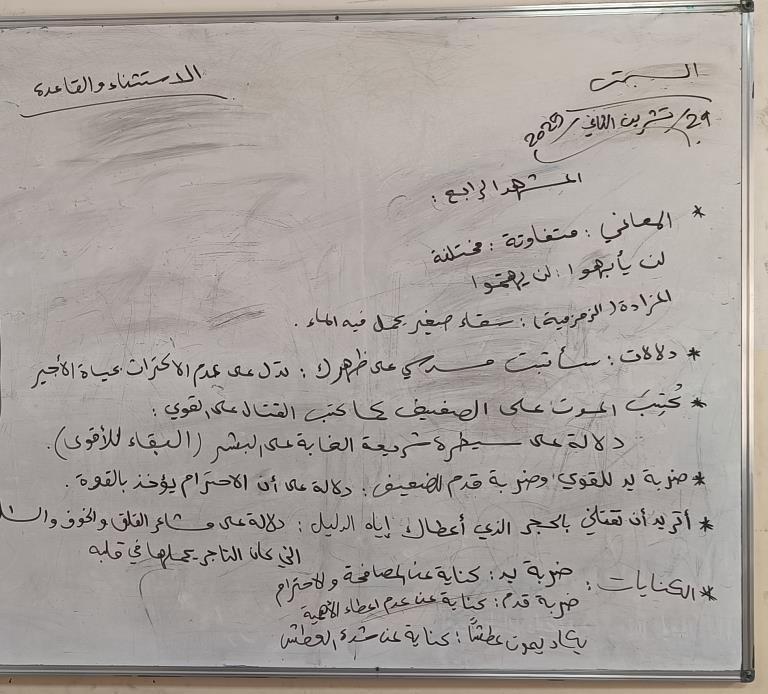 السبت
الاستثناء والقاعدة
29/ تشرين الثاني/ 2025
المشهد الرابع :
* المعاني : متفاوتة : مختلفة
لن يأبهوا : لن يهتموا
المزادة (الزمزمية) : سقاء صغير يحمل فيه الماء .
* دلالات : سأثبت مسدسي على ظهرك : تدل على عدم الاكتراث بحياة الأجير
* كُتِبَ الموت على الضعيف كما كتب القتال على القوي :
دلالة على سيطرة شريعة الغابة على البشر (البقاء للأقوى) .
* ضربة يد للقوي وضربة قدم للضعيف : دلالة على أن الاحترام يؤخذ بالقوة .
* أتريد أن تقتلني بالحجر الذي أعطاك إياه الدليل : دلالة على مشاعر القلق والخوف
التي كان التاجر يحملها في قلبه
* الكنايات : ضربة يد : كناية عن المصافحة والاحترام
ضربة قدم : كناية عن عدم إعطاء الأهمية
يكاد يموت عطشًا : كناية عن شدة العطش